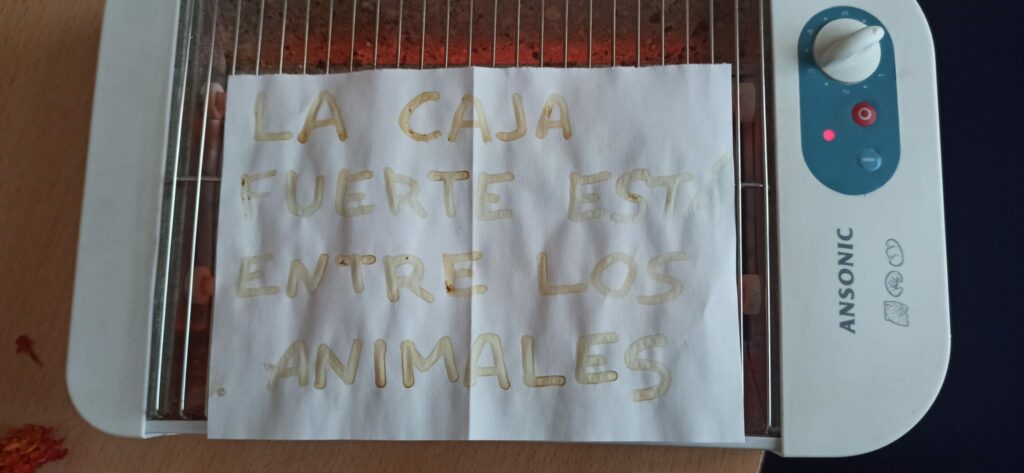 LA CAJA
FUERTE ESTÁ
ENTRE LOS
ANIMALES
ANSONIC